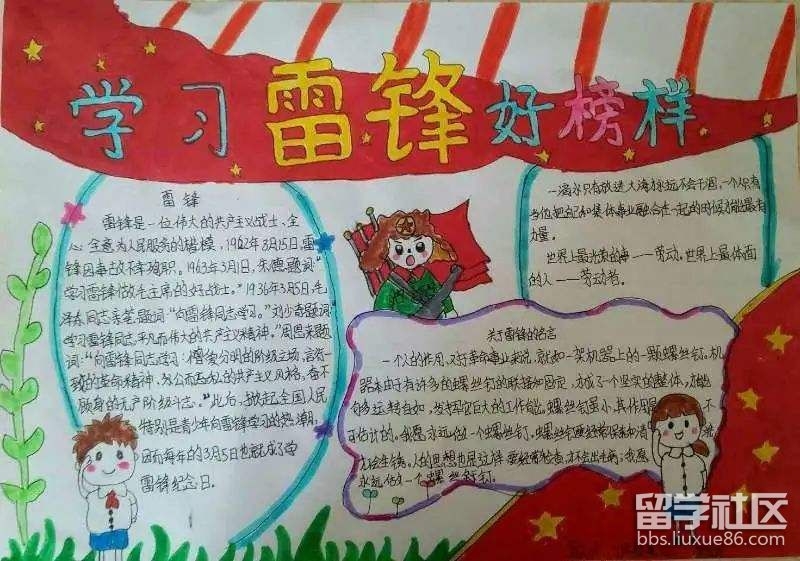 学习雷锋好榜样
雷锋
雷锋是一位伟大的共产主义战士、全
心全意为人民服务的楷模,1962年8月15日,雷
锋因事故不幸殉职。1963年3月1日,朱德题词
"学习雷锋做毛主席的好战士。"1936年3月5日,毛
泽东同志亲笔题词"向雷锋同志学习。"刘少奇题词
学习雷锋同志平凡而伟大的共产主义精神。"周恩来题
词:"向雷锋同志学习:憎爱分明的阶级立场,言行一
致的革命精神,为公而忘私的共产主义风格,奋不
顾身的无产阶级斗志。"此后,掀起全国人民
特别是青少年向雷锋学习的热潮,
因而每年的3月5日也就成了学
雷锋纪念日。
一滴水只有放进大海才永远不会干涸,一个人只有
当他把自己和集体事业融合在一起的时候才能最有
力量。
世界上最光荣的事——劳动。世界上最体面
的人——劳动者。
关于雷锋的名言
一个人的作用,对于革命事业来说,就如一架机器上的一颗螺丝钉。机
器由于有许多的螺丝钉的联接和固定,才成了个坚实的整体,才能
够运转自如,发挥它巨大的工作能。螺丝钉虽小,其作用是 不
可估计的。我愿永远做一个螺丝钉。螺丝钉要经常保养和清
才会生锈。人的思想也是这样,要经常检查,才不会出毛病。我愿
永远做一个螺丝钉。
留学社区
bbs.liuxue86.com